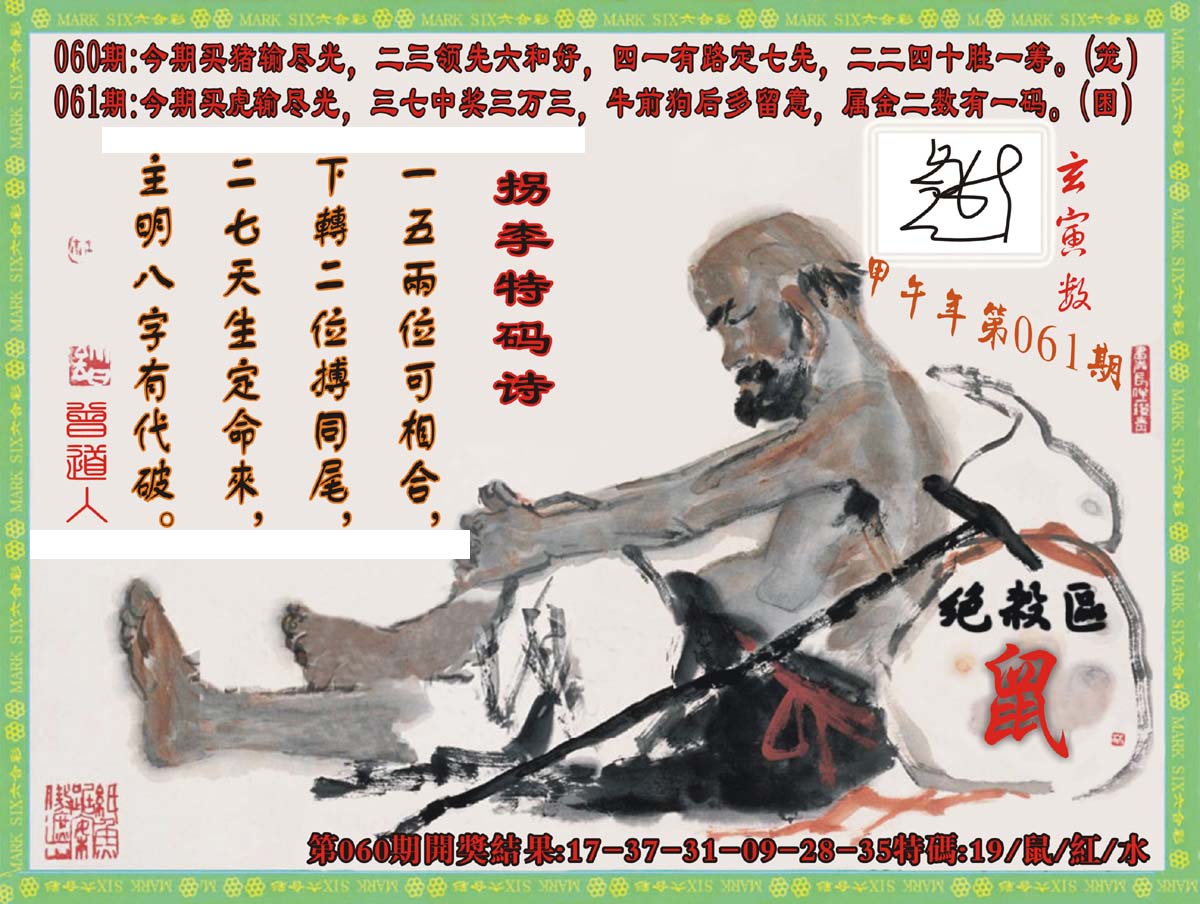 MARK SIX六合彩 MARK SIX六合彩 MARK SIX六合彩 MARK SIX六合彩 MARK SIX六合彩 MARK SIX六合彩
060期:今期买猪输尽光，二三领先六和好，四一有路定七先，二二四十胜一筹。(笼)
061期:今期买虎输尽光，三七中奖三万三，牛前狗后多留意，属金二数有一码。(困)
玄寅数
甲午年第061期
拐李特码诗
一五兩位可相合，
下轉二位搏同尾，
二七天生定命來，
主明八字有代破。
曾道人
绝殺區
鼠
第060期開獎結果:17-37-31-09-28-35特碼:19/鼠/紅/水